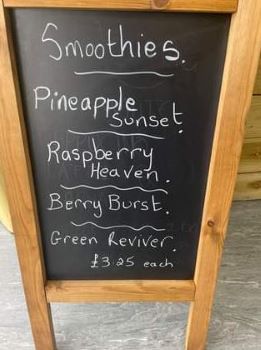 Smoothies.
Pineapple
Sunset.
Raspberry
Heaven.
Berry Burst.
Green Reviver.
£3.25 each